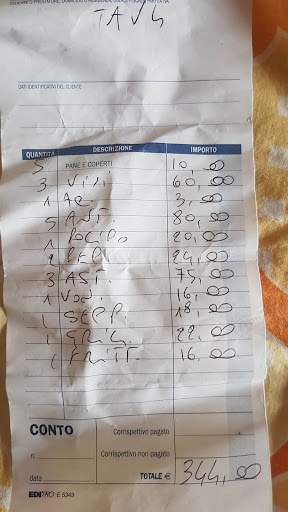 DOMICILIO O RESIDENZA, CODICE FISCALE, PARTITA IVA
TAV 4
DATI IDENTIFICATIVI DEL CLIENTE
QUANTITÀ DESCRIZIONE IMPORTO
5 PANE E COPERTI 10,00
3 Vini 60,00
1 AQ. 3,00
5 ANT. 80,00
1 20,00
2 24,00
3 AST. 75,00
1 VON. 16,00
1 SEPP. 18,00
1 GRIG. 22,00
1 FRITT. 16,00
CONTO Corrispettivo pagato
n. Corrispettivo non pagato
data TOTALE € 344,00
EDIPRO E 5343